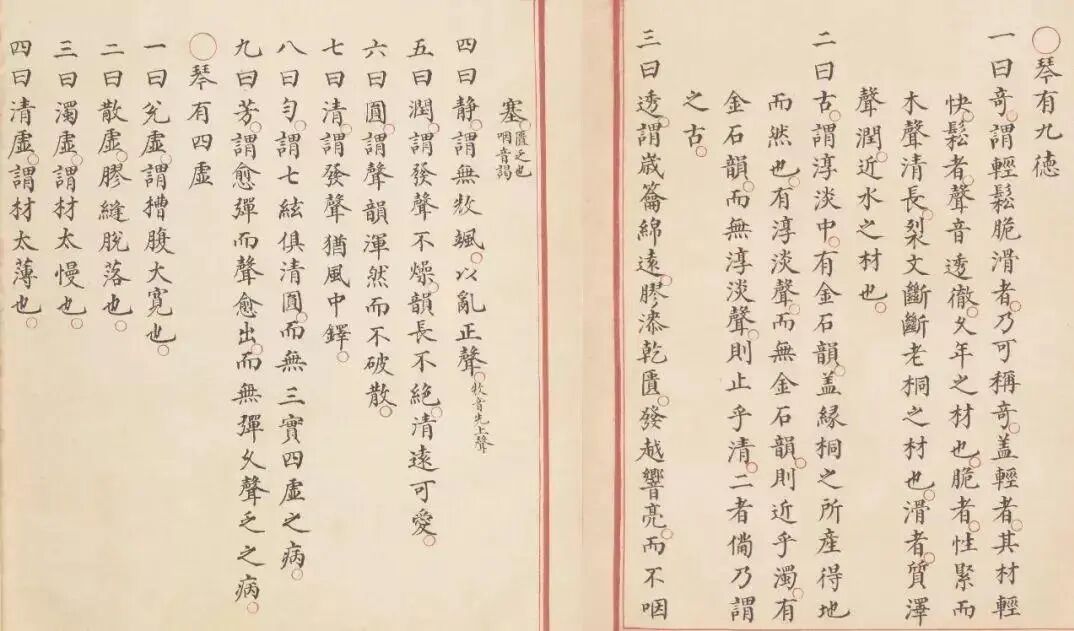 ○琴有九德
一曰奇。謂輕鬆脆滑者。乃可稱奇。盖輕者。其材輕
快。鬆者。聲音透徹。久年之材也。脆者。性緊而
木聲清長。裂文斷斷老桐之材也。滑者。質澤
聲潤。近水之材也。
二曰古。謂淳淡中。有金石韻。盖緣桐之所產得地
而然也。有淳淡聲。而無金石韻。則近乎濁。有
金石韻。而無淳淡聲。則止乎清。二者偹乃謂
之古。
三曰透。謂歲籥綿遠。膠漆乾匱。發越響亮。而不咽
塞。匱乏也
咽音謁
四曰静。謂無颯。以亂正聲。音先上聲
五曰潤。謂發聲不燥。韻長不絕。清遠可愛。
六曰圓。謂聲韻渾然而不破散。
七曰清。謂發聲猶風中鐸。
八曰匀。謂七絃俱清圓。而無三實四虛之病。
九曰芳。謂愈彈而聲愈出。而無彈久聲乏之病。
○琴有四虛
一曰虛。謂槽腹大寬也。
二曰散虛。膠縫脫落也。
三曰濁虛。謂材太慢也。
四曰清虛。謂材太薄也。